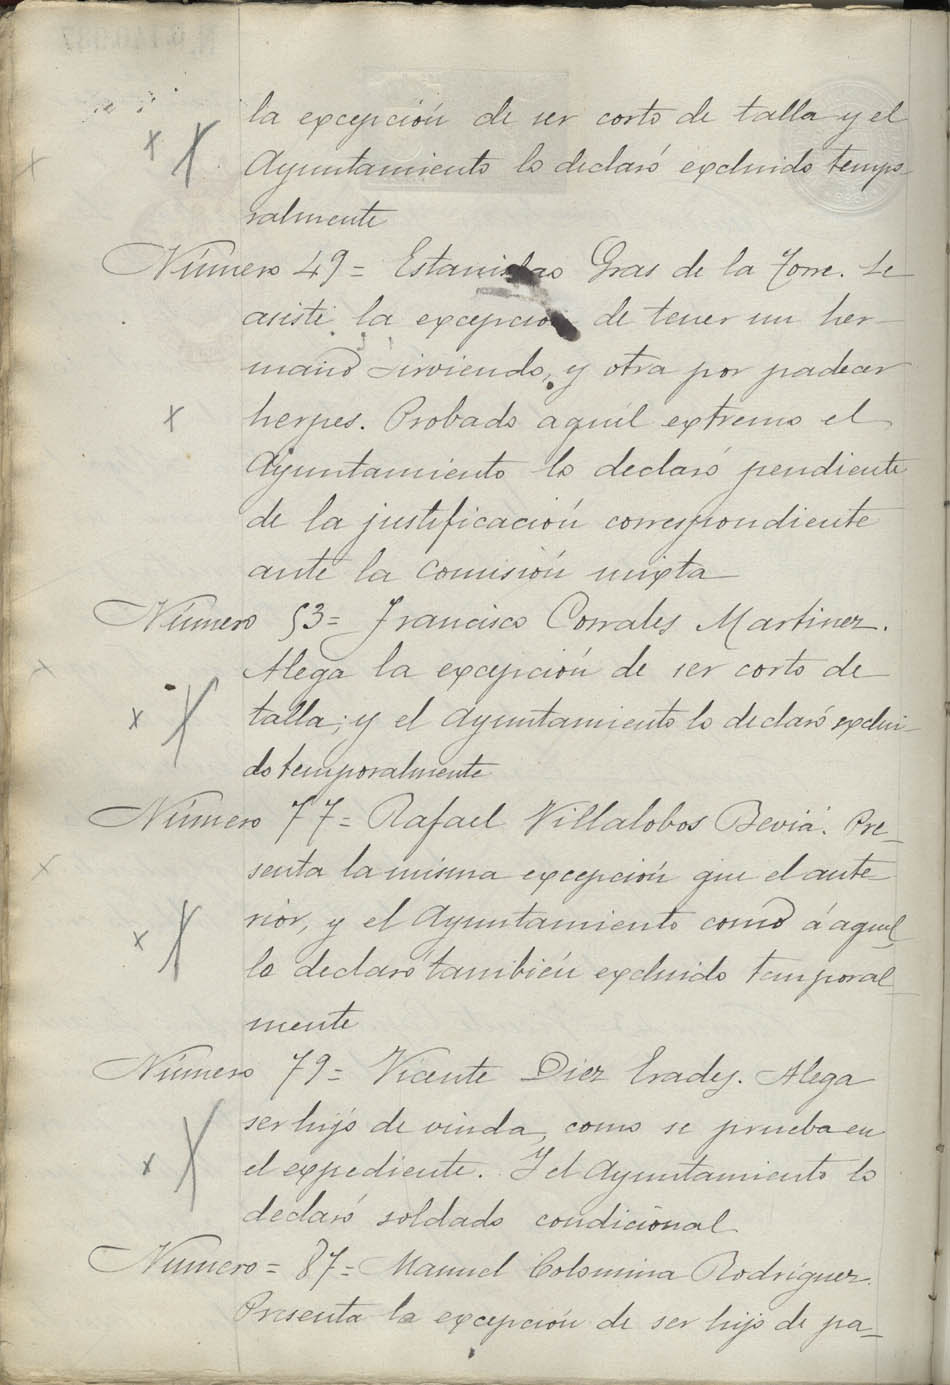 la excepción de ser corto de talla y el
Ayuntamiento lo declaró excluido tempo-
ralmente
Número 49= Estanislao Gras de la Torre. Le
asiste la excepción de tener un her-
mano sirviendo, y otra por padecer
herpes. Probado aquél extremo el
Ayuntamiento lo declaró pendiente
de la justificación correspondiente
ante la Comisión mixta
Número 53= Francisco Corrales Martinez.
Alega la excepción de ser corto de
talla; y el Ayuntamiento lo declaró exclui-
do temporalmente
Número 77= Rafael Villalobos Beviá. Pre-
senta la misma excepción que el ante-
rior, y el Ayuntamiento como á aquel
lo declaró también excluido temporal-
mente
Número 79= Vicente Diez Erades. Alega
ser hijo de viuda, como se prueba en
el expediente. Y el Ayuntamiento lo
declaró soldado condicional
Número= 87= Manuel Colomina Rodríguez.
Presenta la excepción de ser hijo de pa-